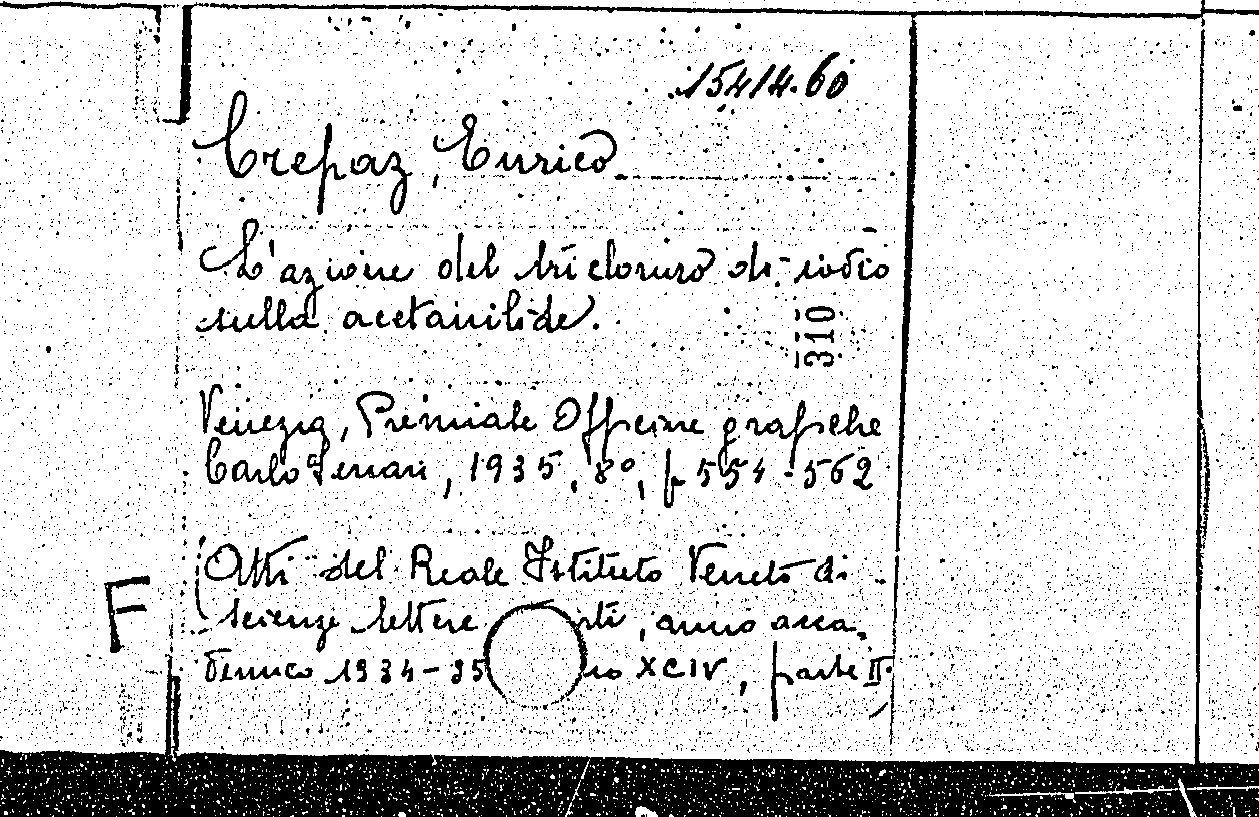 15414.60
Crepaz, Enrico
L'azione del tricloruro di iodio
sulla acetanilide.
310
Venezia, Premiate Officine grafiche
Carlo Ferrari, 1935, 8°, p 554-562
(Atti del Reale Istituto Veneto di
scienze lettere rti, anno acca-
F
demico 1934-35 mo XCIV, parte II)